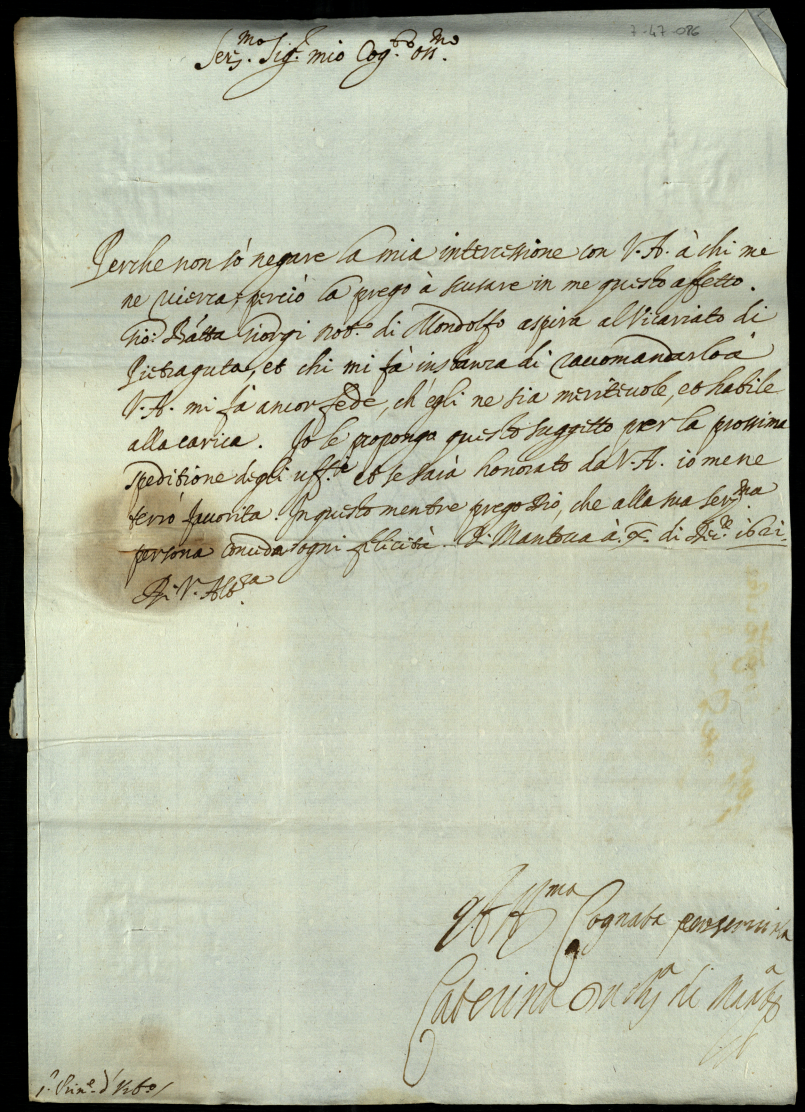 7-47-086
Ser.mo Sig.r mio Cog.to oss.mo
Perche non sò negare la mia intercessione con V.A. à chi me
ne ricerca, perciò la prego à scusare in me questo affetto.
Gio: Batta Giorgi nob.e di Mondolfo aspira al Vicariato di
Pietraguta, et chi mi fà instanza di raccomandarlo à
V.A. mi fà ancor fede, ch'egli ne sia meriteuole, et habile
alla carica. Io le propongo questo suggetto per la prossima
speditione degli uff.ti et se sarà honorato da V.A. io me ne
terrò fauorita. In questo mentre prego Dio, che alla sua Ser.ma
persona conceda ogni felicità. Di Mantoua à X. di Dic.re 1621.
Di V. Alt.za
Aff.ma Cognata per seruirla
Caterina Duch.a di Mant.a
S.r Prin.e d'Urb.o